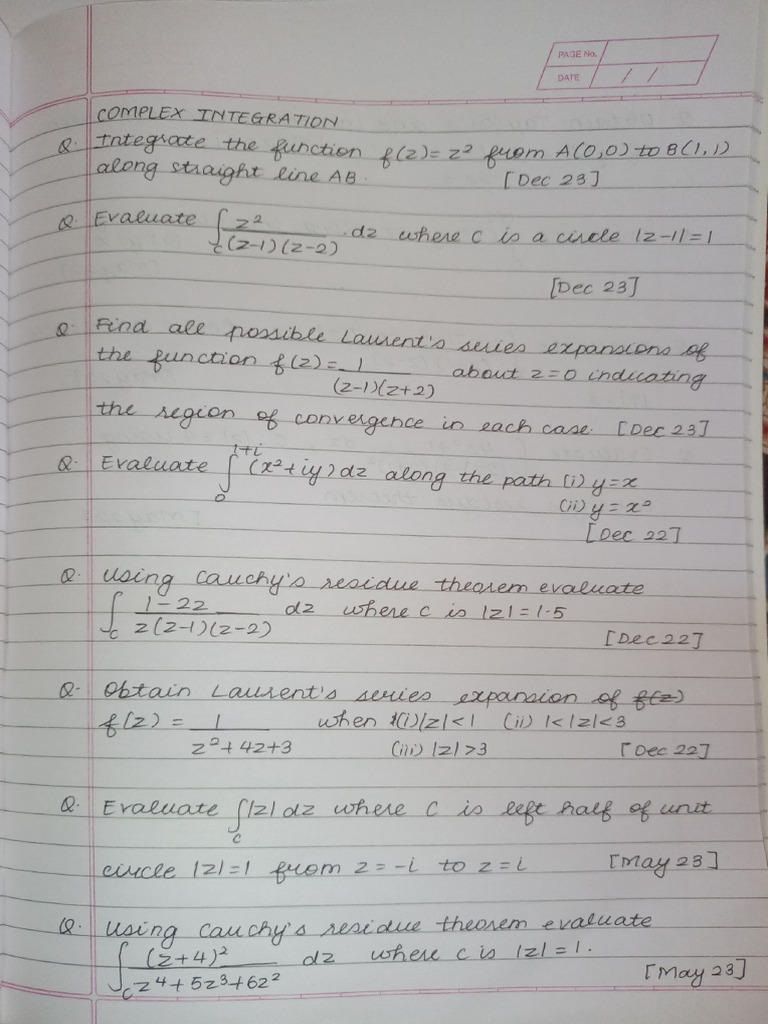 PAGE No.
DATE / /
COMPLEX INTEGRATION
Q. Integrate the function f(z) = z² from A(0,0) to B(1,1)
along straight line AB. [Dec 23]
Q. Evaluate ∫_C z²/((z-1)(z-2)) . dz where C is a circle |z-1|=1
[Dec 23]
Q. Find all possible Laurent's series expansions of
the function f(z) = 1/((z-1)(z+2)) about z=0 indicating
the region of convergence in each case. [Dec 23]
Q. Evaluate ∫_0^{1+i} (x²+iy) dz along the path (i) y=x
(ii) y=x²
[Dec 22]
Q. Using Cauchy's residue theorem evaluate
∫_C (1-2z)/(z(z-1)(z-2)) dz where C is |z|=1.5
[Dec 22]
Q. Obtain Laurent's series expansion of f(z)
f(z) = 1/(z²+4z+3) when (i)|z|<1 (ii) 1<|z|<3
(iii) |z|>3 [Dec 22]
Q. Evaluate ∫_C |z| dz where C is left half of unit
circle |z|=1 from z=-i to z=i [May 23]
Q. Using Cauchy's residue theorem evaluate
∫_C (z+4)²/(z⁴+5z³+6z²) dz where c is |z|=1.
[May 23]